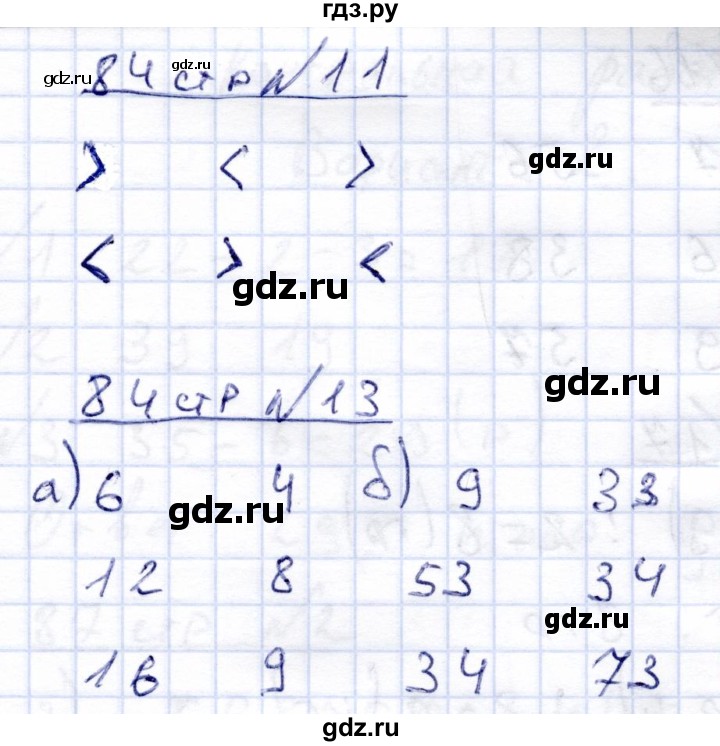 гдз.ру
84 стр №11
gdz.ru
gdz.ru
> < >
gdz.ru
< > <
gdz.ru
gdz.ru
84 стр №13
а) 6 4 б) 9 33
gdz.ru
12 8 53 34
gdz.ru
16 9 34 73
gdz.ru